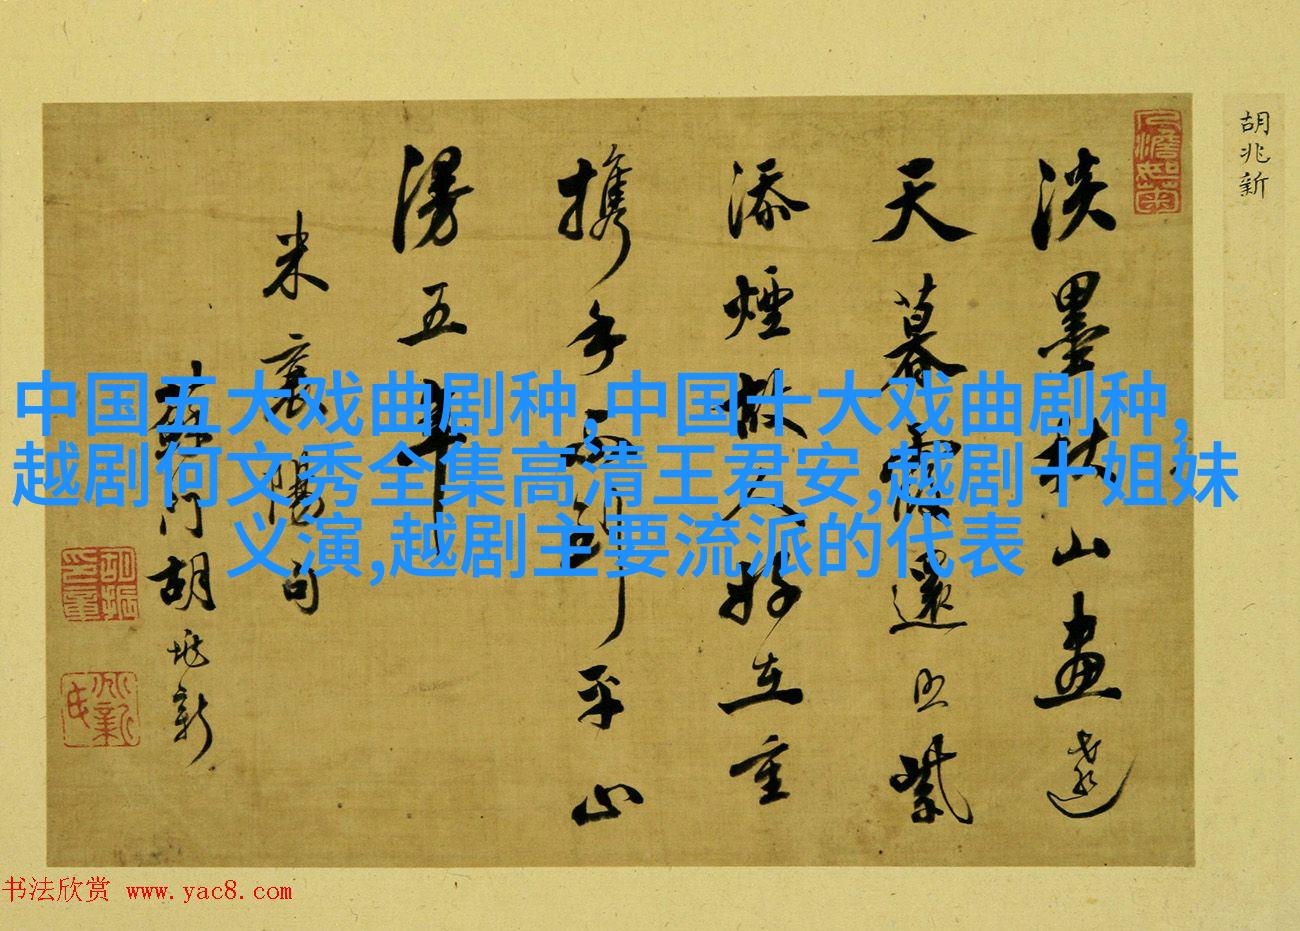 胡兆新
淡墨秋山畫遠
天暮霞還照紫
添煙故人好在重
携手不到平山
漫五年
米襄陽句
門胡兆新
中国五大戏曲剧种,中国十大戏曲剧种,
越剧何文秀全集高清王君安,越剧十姐妹
义演,越剧主要流派的代表
书法欣赏 www.yac8.com